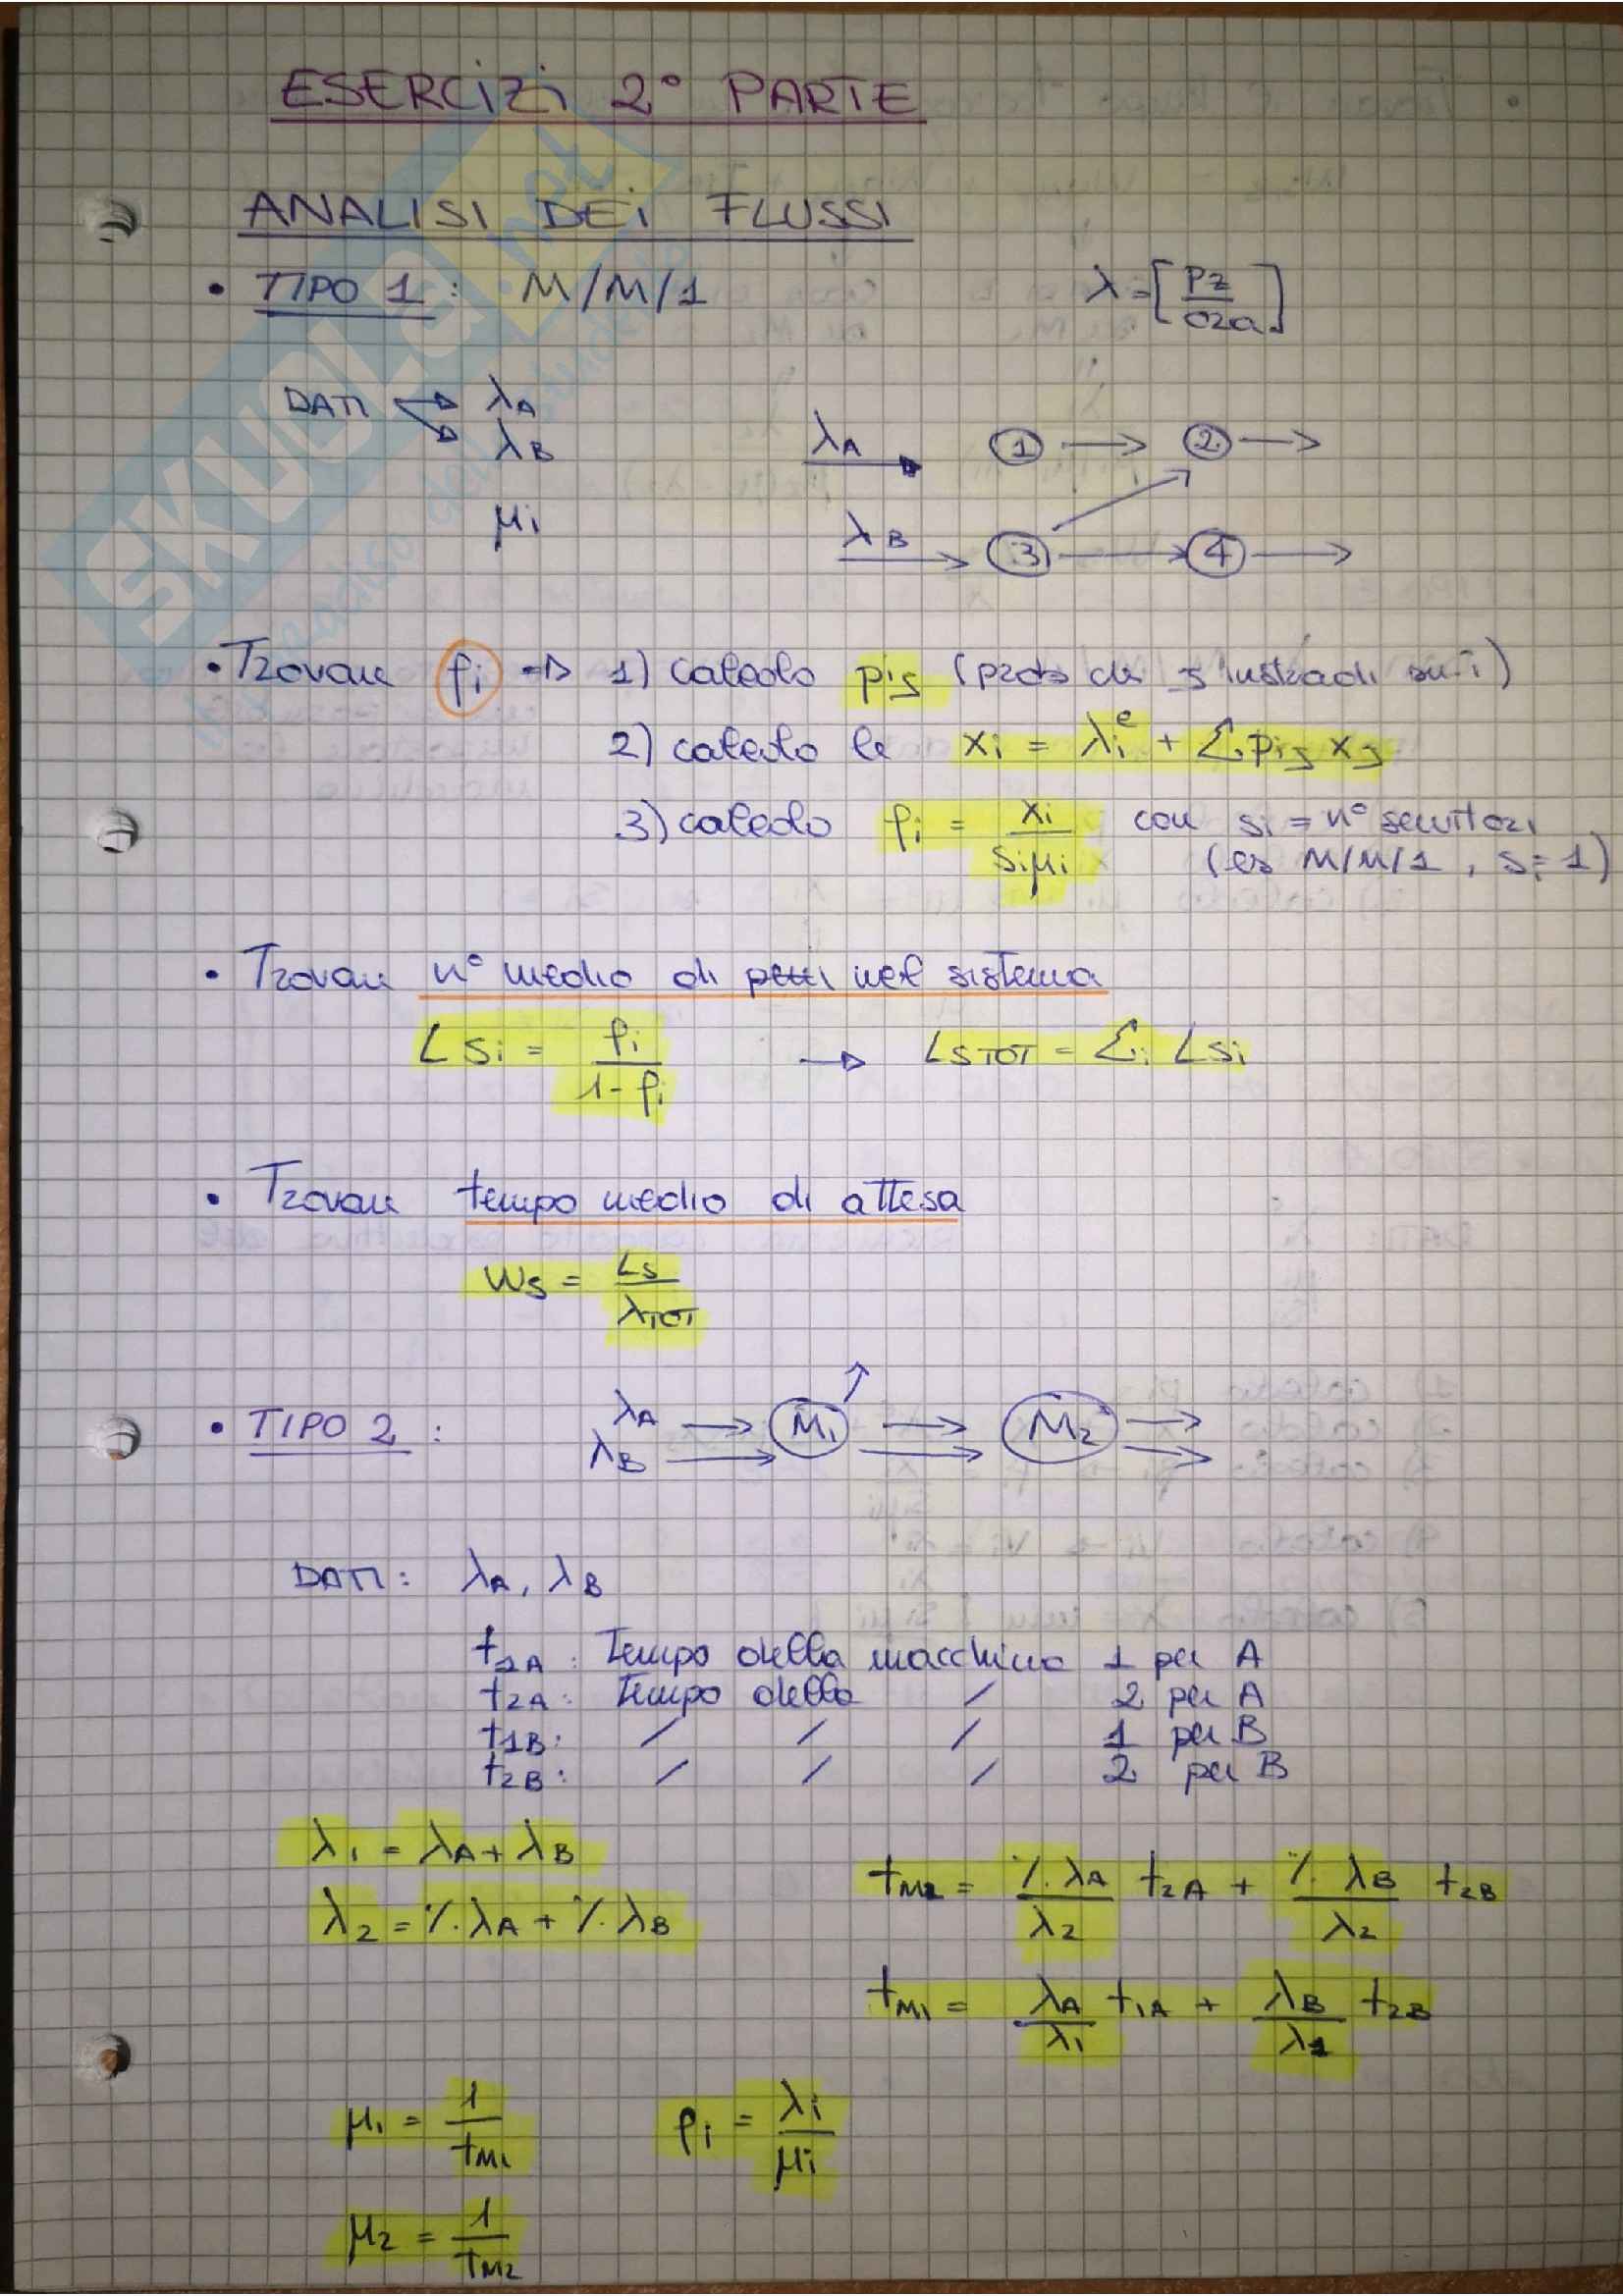 ESERCIZI 2° PARTE
ANALISI DEI FLUSSI
• TIPO 1 : M/M/1 λ = [pz/ora]
DATI λA
λB
μi
λA → 1 → 2 →
λB → 3 → 4 →
• Trovare ρi => 1) calcolo pij (prob che j instradi su i)
2) calcolo le xi = λi^e + Σi pij xj
3) calcolo ρi = xi / siμi con si = n° servitori
(es M/M/1, si = 1)
• Trovare n° medio di pezzi nel sistema
Lsi = ρi / 1-ρi → LsTOT = Σi Lsi
• Trovare tempo medio di attesa
Ws = Ls / λTOT
• TIPO 2 : λA → M1 → M2 →
λB
DATI: λA, λB
t1A : Tempo della macchina 1 per A
t2A : Tempo della / 2 per A
t1B : / / / 1 per B
t2B : / / / 2 per B
λ1 = λA + λB
tM2 = %λA / λ2 t2A + %λB / λ2 t2B
λ2 = %λA + %λB
tM1 = λA / λ1 t1A + λB / λ1 t2B
μ1 = 1 / tM1 ρi = λi / μi
μ2 = 1 / tM2
SKUOLA.net
il paradiso dello studente